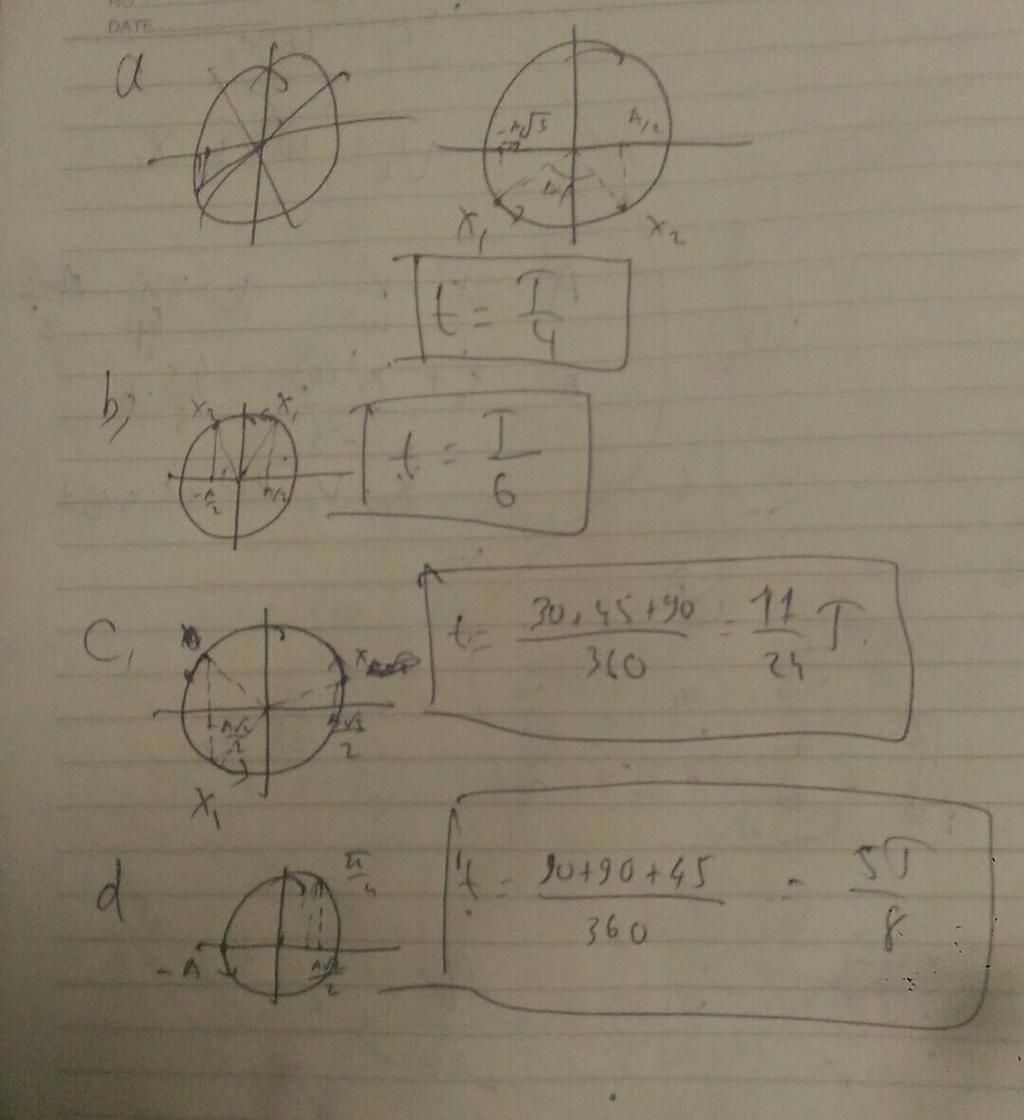 NO.
DATE
a
-A√3/2 A/2
Δφ
x₁ x₂
t = T/4
b,
x₂ x₁
-A/2 A/2
t = T/6
C,
x
-A√2/2 A√3/2
x₁
t = (30+45+90)/360 = 11/24 T
d
π/4
-A A√2/2
t = (90+90+45)/360 = 5T/8